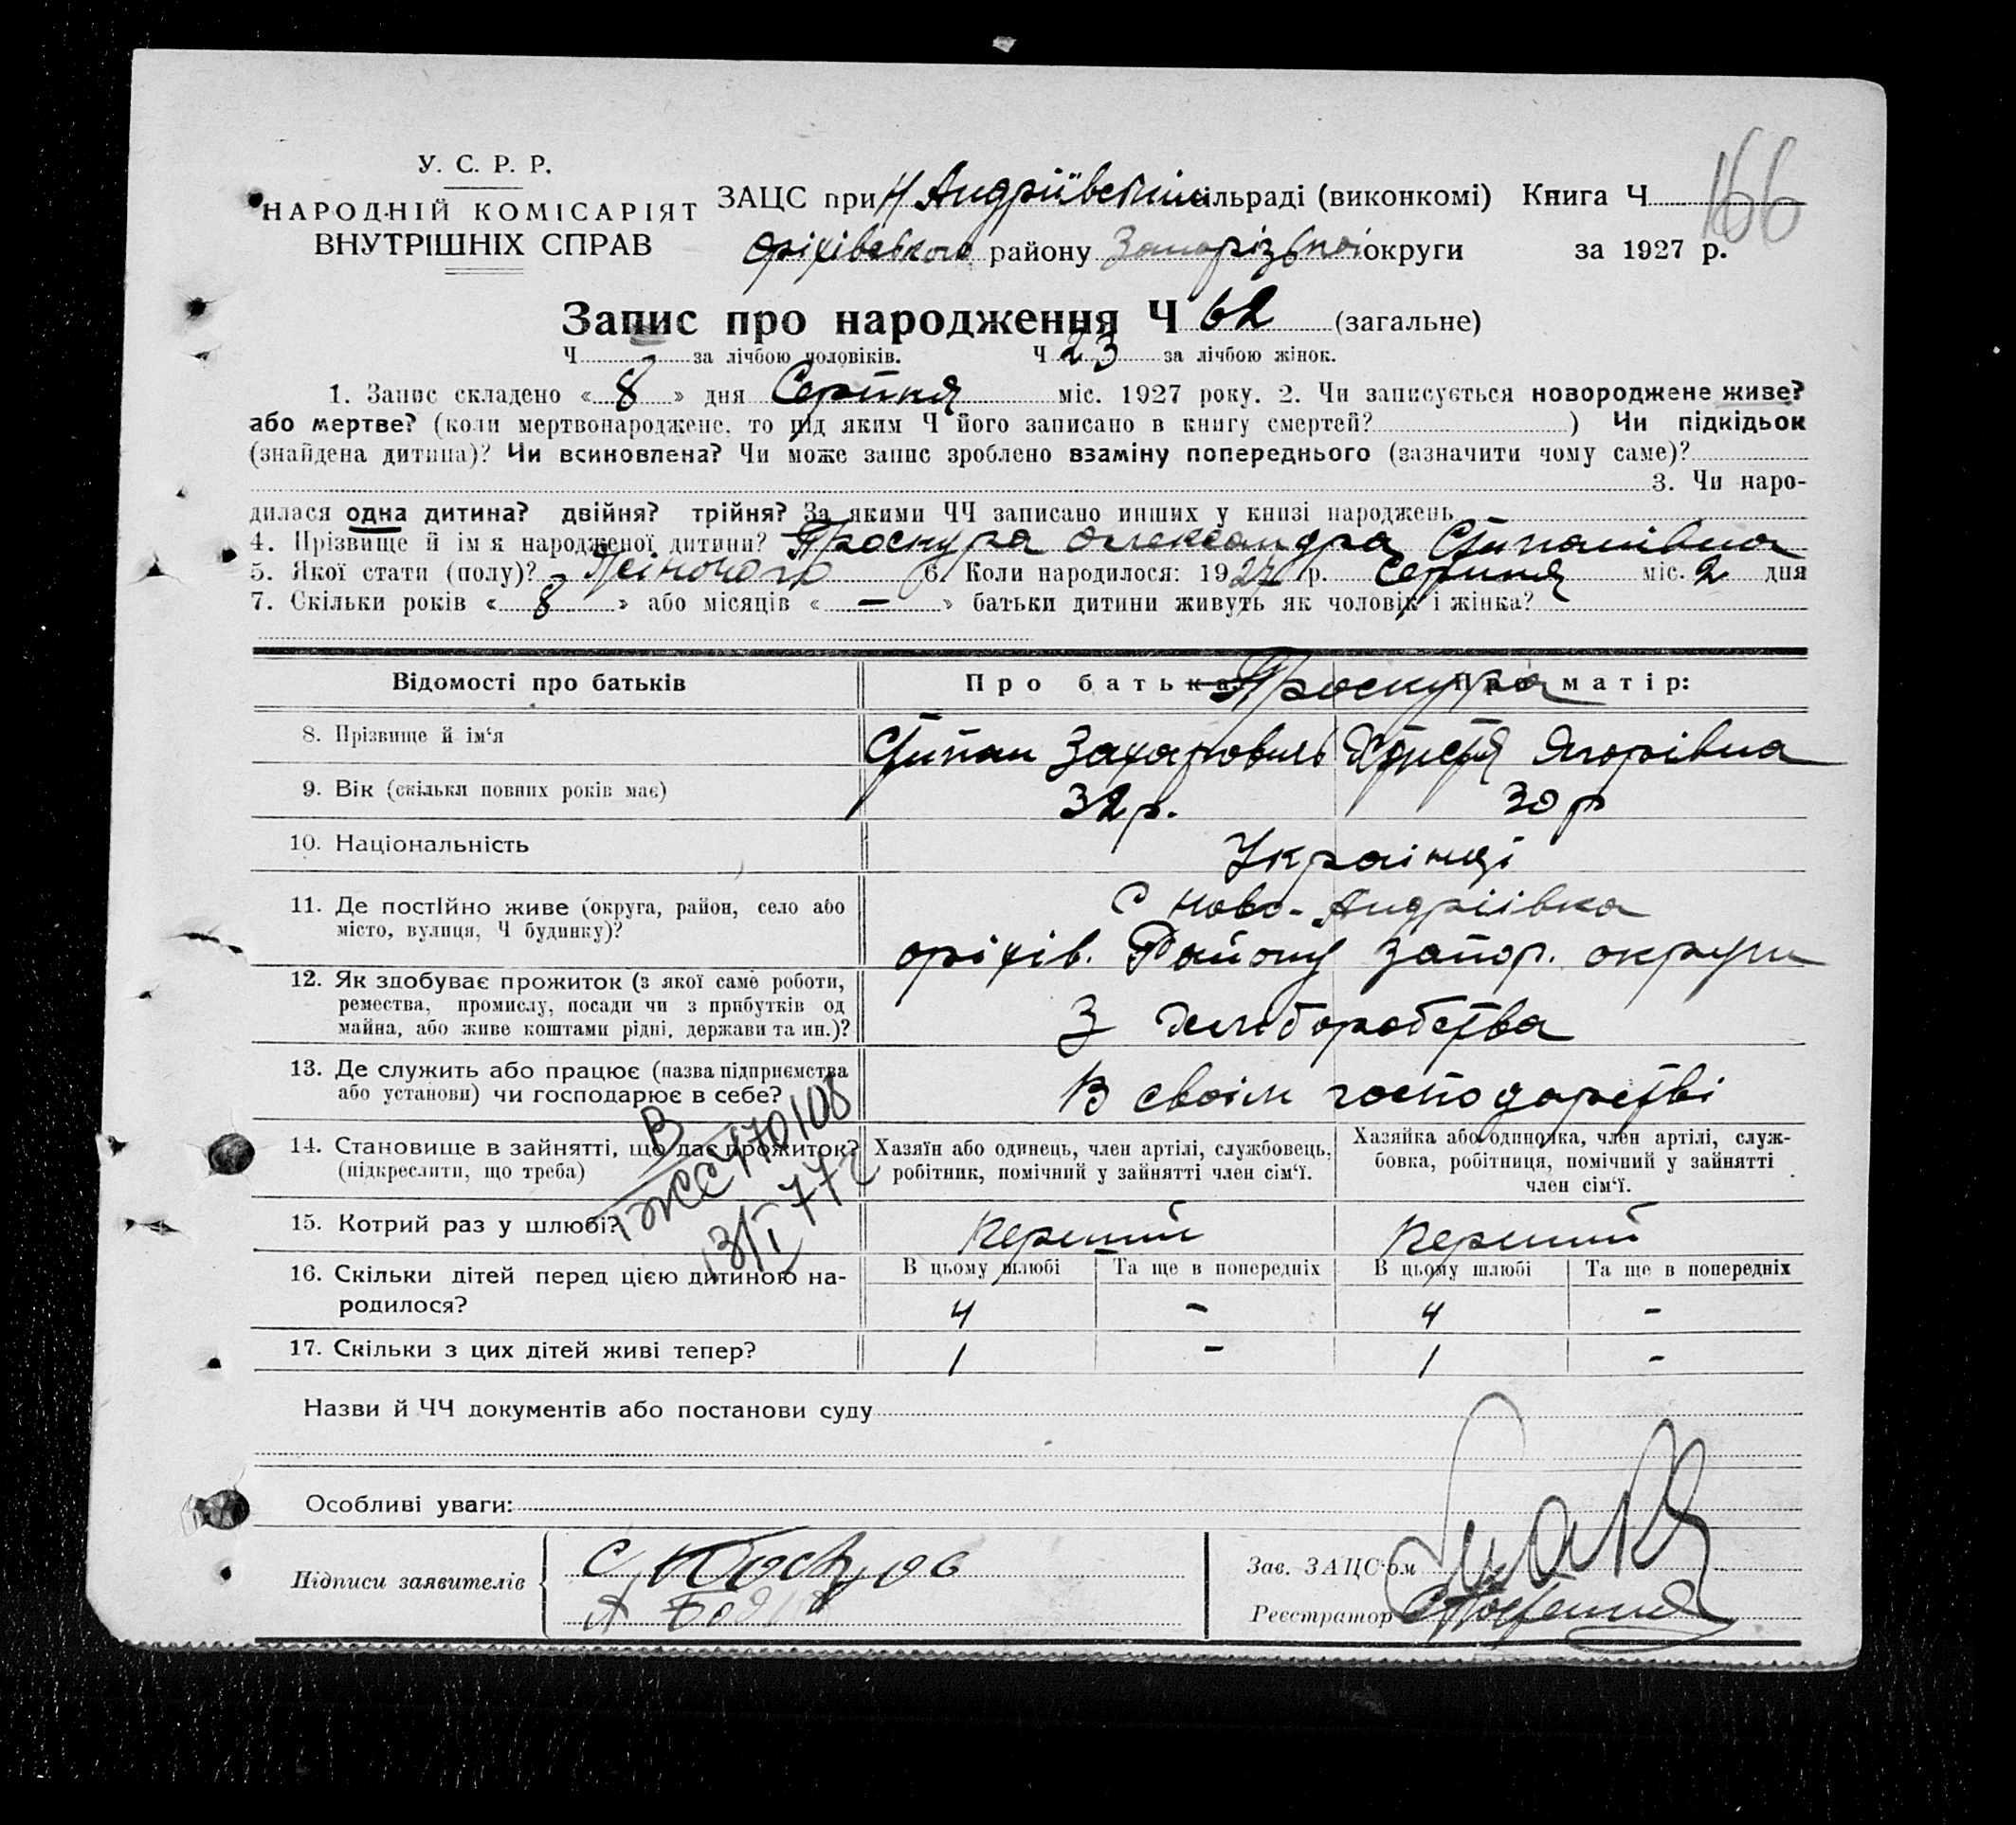 166
У. С. Р. Р.
НАРОДНІЙ КОМІСАРІЯТ
ВНУТРІШНІХ СПРАВ
ЗАЦС при Н Андріївській сільраді (виконкомі) Книга Ч
Оріхівського району Запорізької округи за 1927 р.
Запис про народження Ч 62 (загальне)
Ч - за лічбою чоловіків. Ч 23 за лічбою жінок.
1. Запис складено « 8 » дня Серпня міс. 1927 року. 2. Чи записується новороджене живе?
або мертве? (коли мертвонароджене, то під яким Ч його записано в книгу смертей? ) Чи підкідьок
(знайдена дитина)? Чи всиновлена? Чи може запис зроблено взаміну попереднього (зазначити чому саме)?
3. Чи наро-
дилася одна дитина? двійня? трійня? За якими ЧЧ записано инших у книзі народжень
4. Прізвище й ім я народженої дитини? Проскура Олександра Стипанівна
5. Якої стати (полу)? Жіночого 6. Коли народилося: 1927 р. Серпня міс. 2 дня
7. Скільки років « 8 » або місяців « — » батьки дитини живуть як чоловік і жінка?
Відомості про батьків Про батька: Про матір:
Проскура
8. Прізвище й ім‘я Стипан Захарович Христя Ягорівна
9. Вік (скільки повних років має) 32 р. 30 р
10. Національність Українці
11. Де постійно живе (округа, район, село або
місто, вулиця, Ч будинку)?
С Ново-Андріівка
оріхів. Району Запор. округи
12. Як здобуває прожиток (з якої саме роботи,
ремества, промислу, посади чи з прибутків од
майна, або живе коштами рідні, держави та ин.)?
З хліборобства
13. Де служить або працює (назва підприємства
або установи) чи господарює в себе?
В своім господарстві
14. Становище в зайнятті, що дає прожиток?
(підкреслити, що треба)
Хазяїн або одинець, член артілі, службовець,
робітник, помічний у зайнятті член сім‘ї.
Хазяйка або одиночка, член артілі, служ-
бовка, робітниця, помічний у зайнятті
член сім‘ї.
15. Котрий раз у шлюбі? Перший Перший
16. Скільки дітей перед цією дитиною на-
родилося?
В цьому шлюбі Та ще в попередніх В цьому шлюбі Та ще в попередніх
4 - 4 -
17. Скільки з цих дітей живі тепер? 1 - 1 -
Назви й ЧЧ документів або постанови суду
Особливі уваги:
Підписи заявителів
Зав. ЗАЦС‘ом
Реєстратор